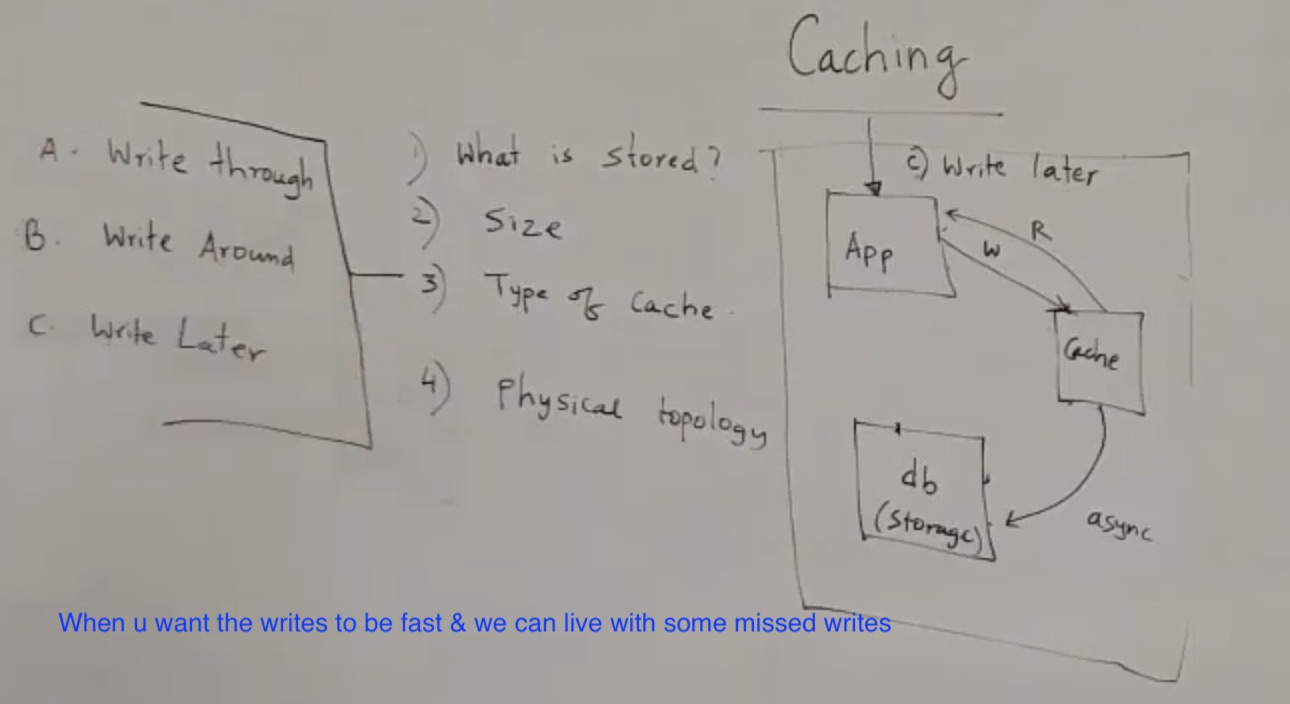 Caching
A. Write through
B. Write Around
C. Write Later
1) What is stored?
2) Size
3) Type of Cache.
4) Physical topology
c) Write later
App
R
W
Cache
db
(Storage)
async
When u want the writes to be fast & we can live with some missed writes